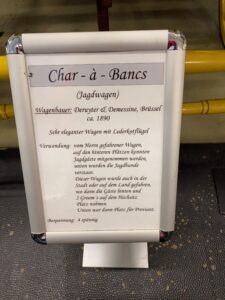 Char - à - Bancs
(Jagdwagen)
Wagenbauer: Deruyter & Demessine, Brüssel
ca. 1890
Sehr eleganter Wagen mit Lederkotflügel
Verwendung: vom Herrn gefahrener Wagen,
auf den hinteren Plätzen konnten
Jagdgäste mitgenommen werden,
unten wurden die Jagdhunde
verstaut.
Dieser Wagen wurde auch in der
Stadt oder auf dem Land gefahren,
wo dann die Gäste hinten und
2 Groom´s auf dem Hochsitz
Platz nahmen.
Unten war dann Platz für Proviant.
Bespannung: 4 spännig